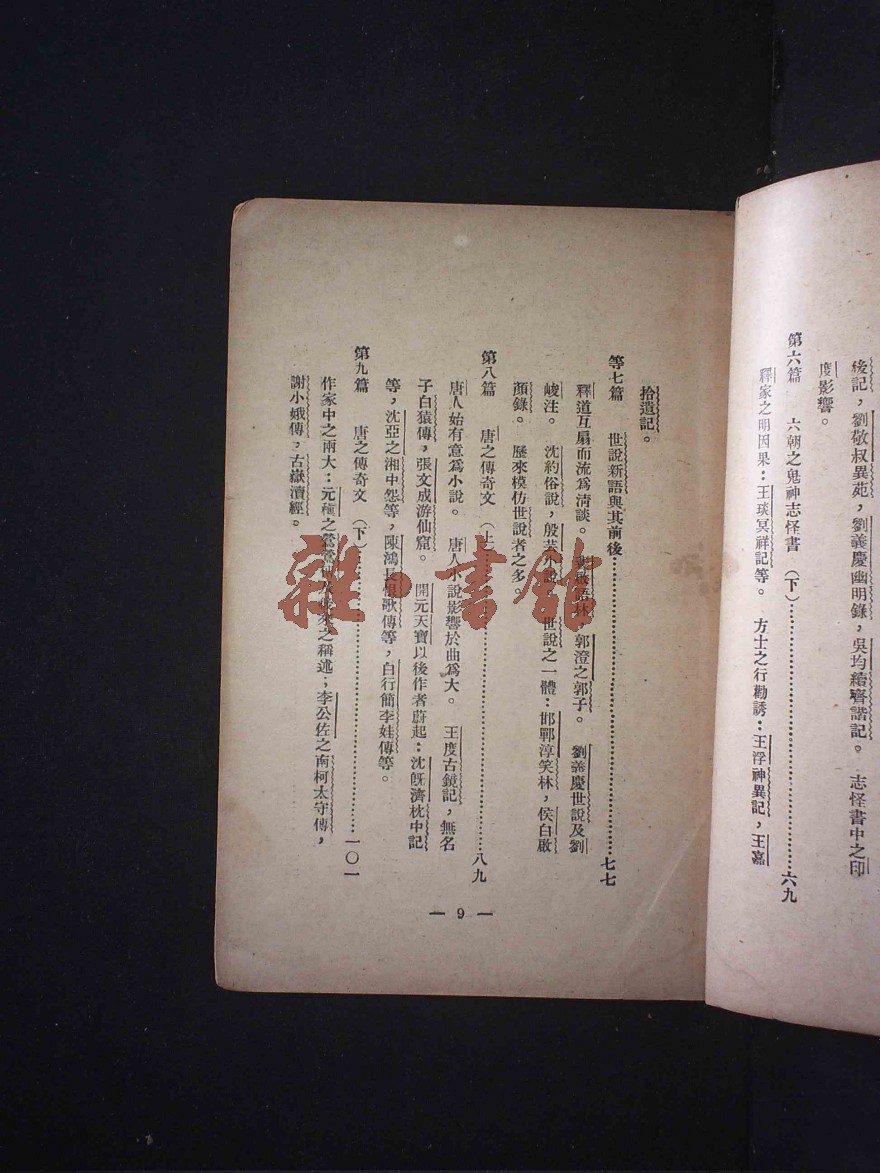 後記，劉敬叔異苑，劉義慶幽明錄，吳均續齊諧記。　志怪書中之印
度影響。
第六篇　六朝之鬼神志怪書（下）……………六九
釋家之明因果：王琰冥祥記等。　方士之行勸誘：王浮神異記，王嘉
拾遺記。
等七篇　世說新語與其前後……………七七
釋道互扇而流爲清談。　裴啟語林，郭澄之郭子。　劉義慶世說及劉
峻注。　沈約俗說，殷芸小說。　世說之一體：邯鄲淳笑林，侯白啟
顏錄。　歷來模仿世說者之多。
第八篇　唐之傳奇文（上）……………八九
唐人始有意爲小說。　唐人小說影響於曲爲大。　王度古鏡記，無名
子白猿傳，張文成游仙窟。　開元天寶以後作者蔚起：沈旣濟枕中記
等，沈亞之湘中怨等，陳鴻長恨歌傳等，白行簡李娃傳等。
第九篇　唐之傳奇文（下）……………一〇一
作家中之兩大：元稹之鶯鶯傳及後來之稱述；李公佐之南柯太守傳，
謝小娥傳，古嶽瀆經。
— 9 —
雜·書館